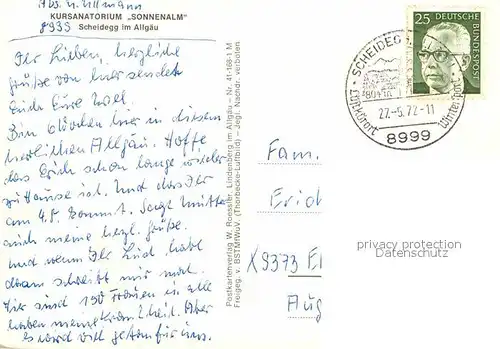 Abs. u. Ullmann
KURSANATORIUM „SONNENALM"
8999 Scheidegg im Allgäu
Ihr Lieben, herzliche
Grüße von hier sendet
Euch Eure
Bin 6 Wochen hier in diesem
herrlichen Allgäu. Hoffe
das Erich schon lange wieder
zu Hause ist. Und das Ihr
am 4.8. kommt. Sagt Mutter
auch meine herzl. Grüße.
und wenn Ihr Lust habt
dann schreibt mir mal.
Hier sind 150 Frauen in alle
haben meine Krankheit. Aber
es wird viel getan für uns.
Postkartenverlag W. Roessler, Lindenberg im Allgäu – Nr. 41-168-1 M
Freigeg. v. BSTMfWuV (Thorbecke-Luftbild) – Jegl. Nachdr. verboten
SCHEIDEGG
800-1000
Luftkurort
Wintersport
27.-5.72-11
8999
25
DEUTSCHE
BUNDESPOST
Fam.
Erich
X9373 E
Aug
privacy protection
Datenschutz